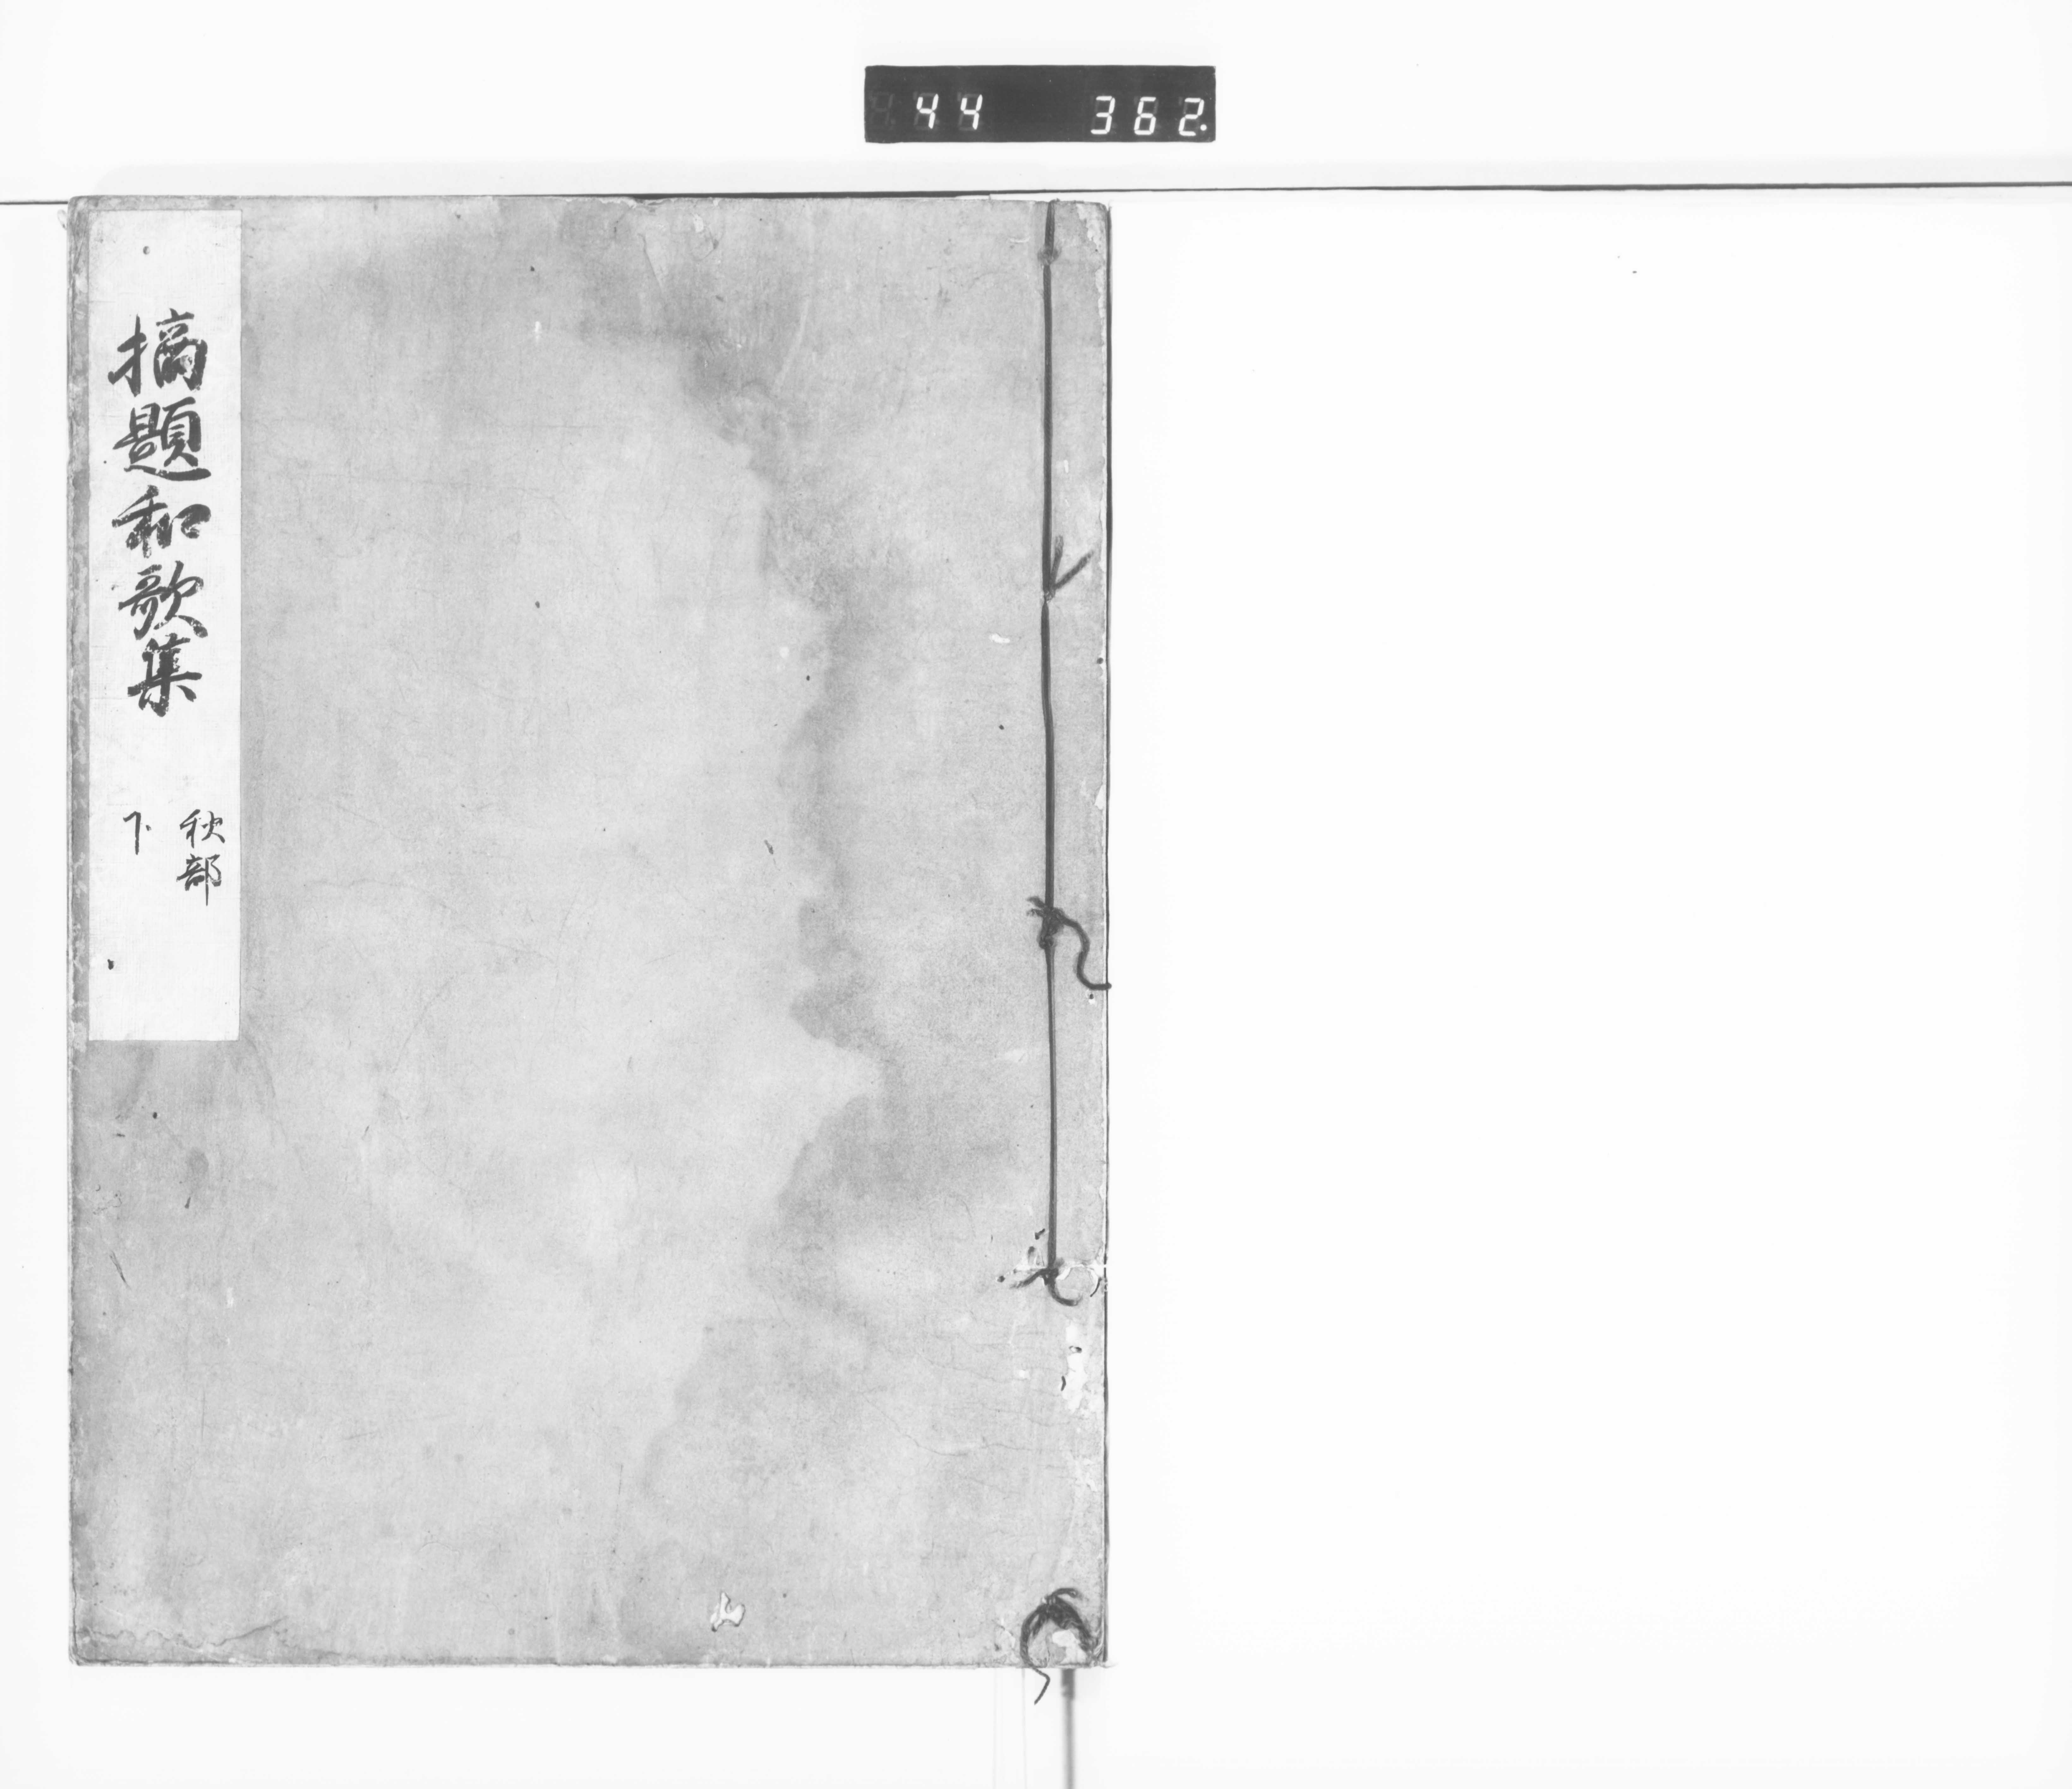 44 362.
摘題和歌集
秋部
下